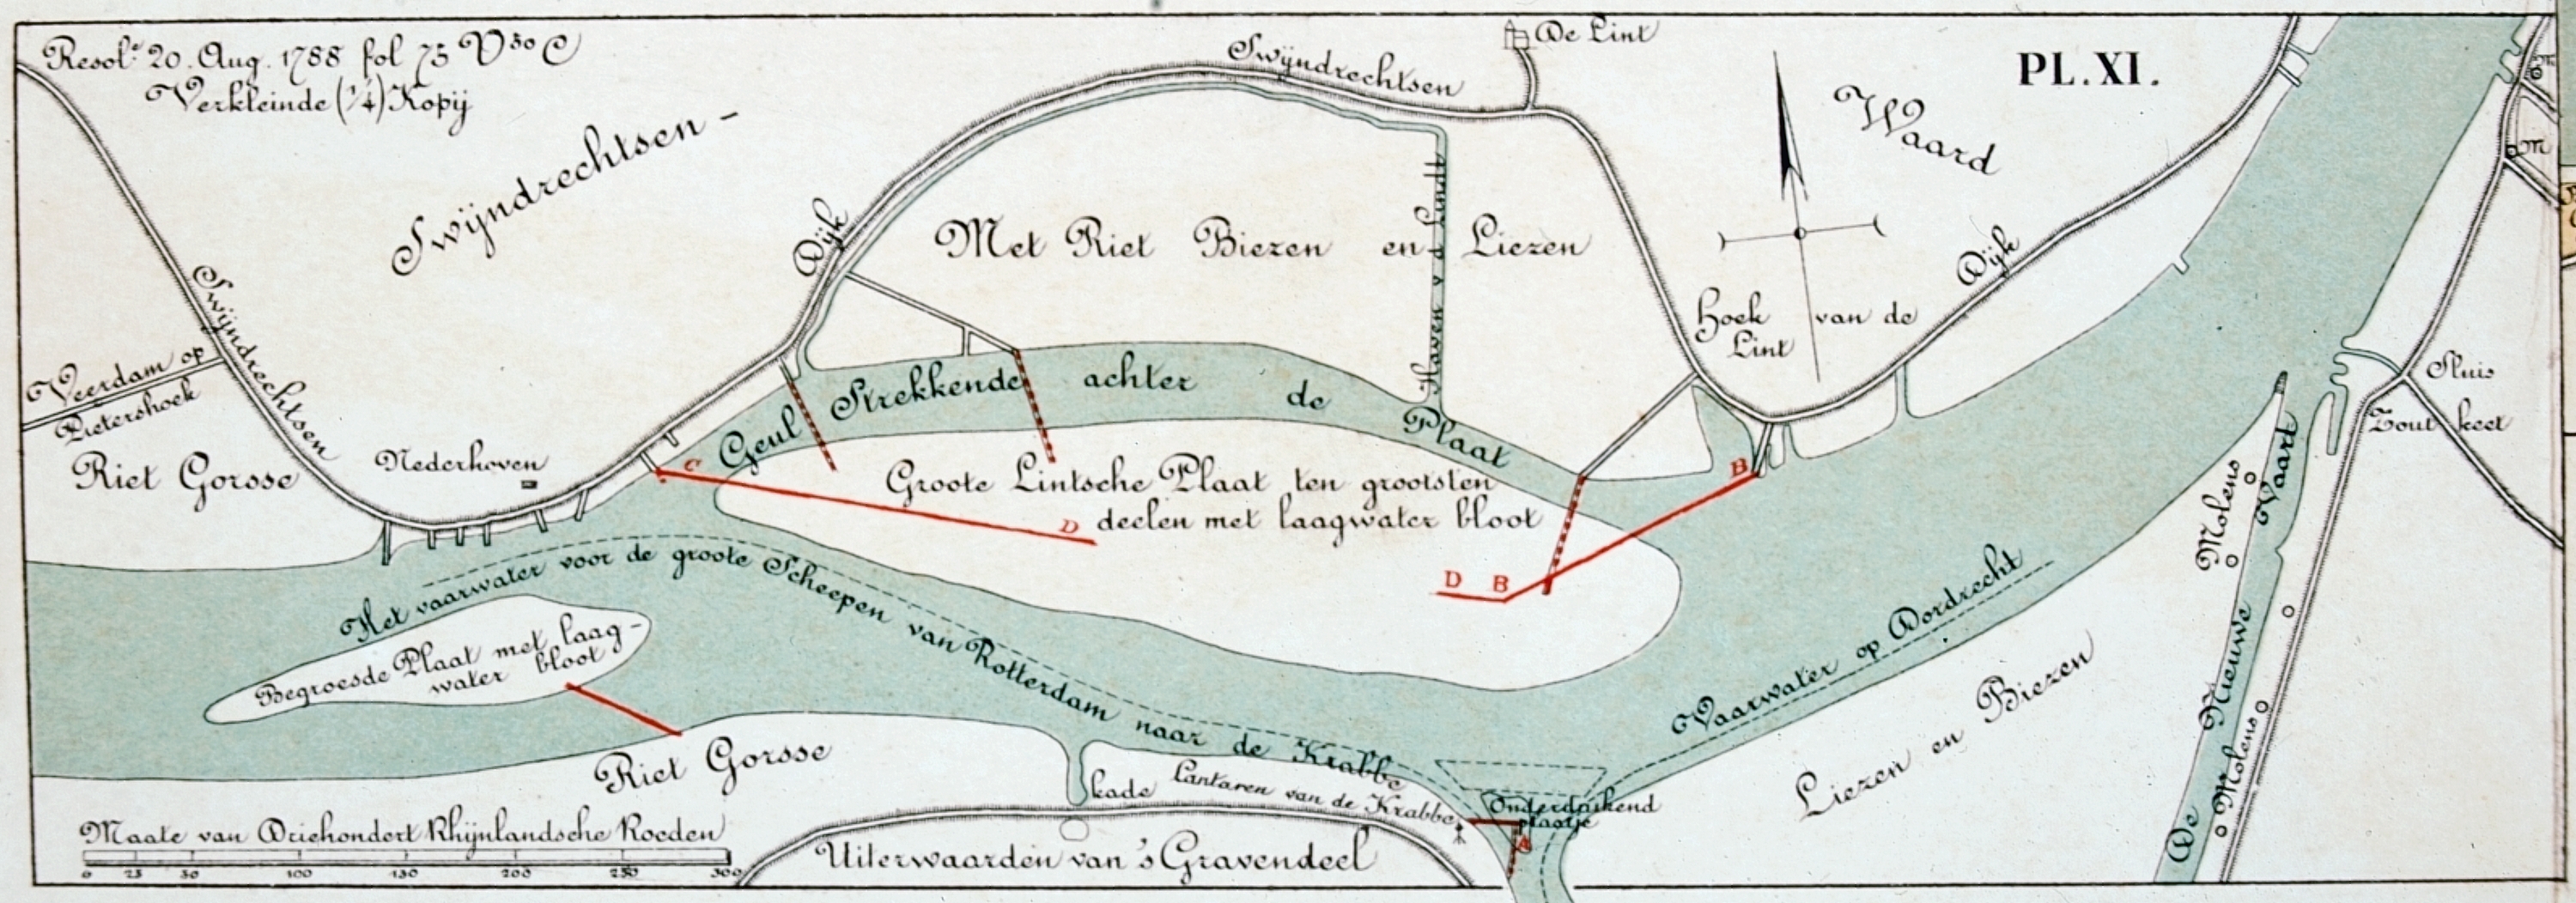 Resol.ᵉ 20. Aug. 1788 fol 75 Vso C
Verkleinde (1/4) Kopij
PL. XI.
De Lint
Swijndrechtsen
Waard
Swijndrechtsen -
Dijk
Met Riet Biezen en Liezen
Haven
Dijk
Hoek van de
Lint
Swijndrechtsen
Veerdam op
Pietershoek
Riet Gorsse
Nederhoven
Geul Strekkende achter de Plaat
Groote Lintsche Plaat ten grootsten
deelen met laagwater bloot
C
D
B
D B
Sluis
Zout keet
m
m
Molens
De Nieuwe Vaart
Molens
Het vaarwater voor de groote Scheepen van Rotterdam naar de Krabbe
Begroesde Plaat met laag-
water bloot
Vaarwater op Dordrecht
Liezen en Biezen
Riet Gorsse
kade
Lantaren van de Krabbe
Onderduikend
plaatje
A
Uiterwaarden van 's Gravendeel
Maate van Driehondert Rhijnlandsche Roeden
0 25 50 100 150 200 250 300